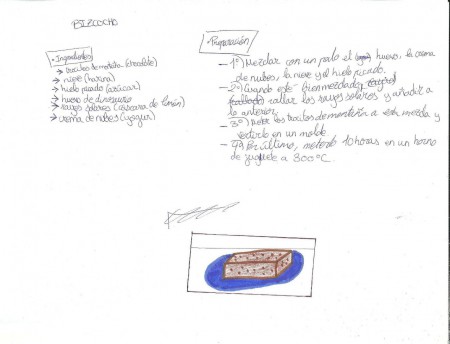 BIZCOCHO
• Ingredientes
→ trocitos de montaña (chocolate)
→ nieve (harina)
→ hielo picado (azúcar)
→ huevo de dinosaurio
→ rayos solares (ráscara de limón)
→ crema de nubes (yogur)
• Preparación
– 1º) Mezclar con un palo el huevo, la crema
de nubes, la nieve y el hielo picado.
– 2º) Cuando esté bien mezclado,
rallar los rayos solares y añadir a
lo anterior.
– 3º) los trocitos de montaña a esta mezcla y
verterlo en un molde.
– 4º) Por último, meterlo 10 horas en un horno
de juguete a 300ºC.